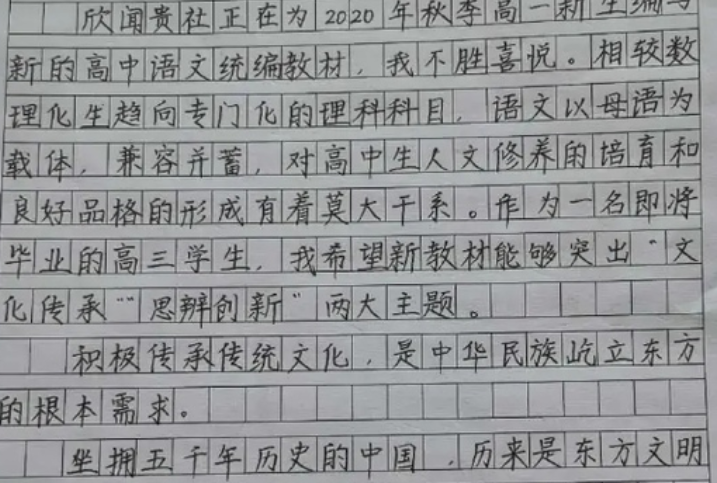 欣闻贵社正在为2020年秋季高一新生编写
新的高中语文统编教材，我不胜喜悦。相较数
理化生趋向专门化的理科科目，语文以母语为
载体，兼容并蓄，对高中生人文修养的培育和
良好品格的形成有着莫大干系。作为一名即将
毕业的高三学生，我希望新教材能够突出“文
化传承”“思辨创新”两大主题。
积极传承传统文化，是中华民族屹立东方
的根本需求。
坐拥五千年历史的中国，历来是东方文明